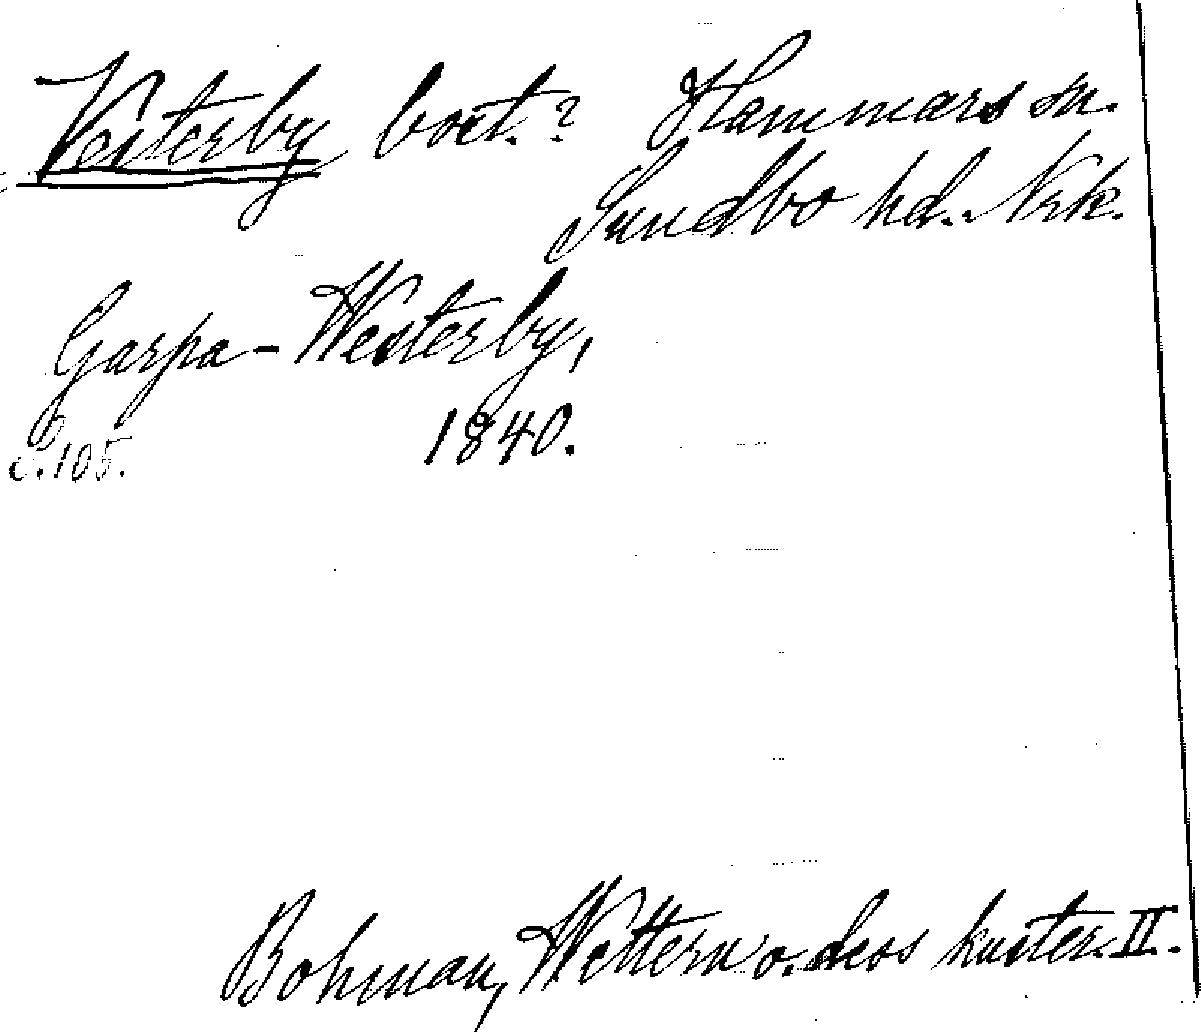 Vesterby boet.? Hammars sn.
Sundbo hd. Nrk.
Garpa-Westerby,
1840.
s. 105.
Bohman, Wettern o. dess kuster. II.